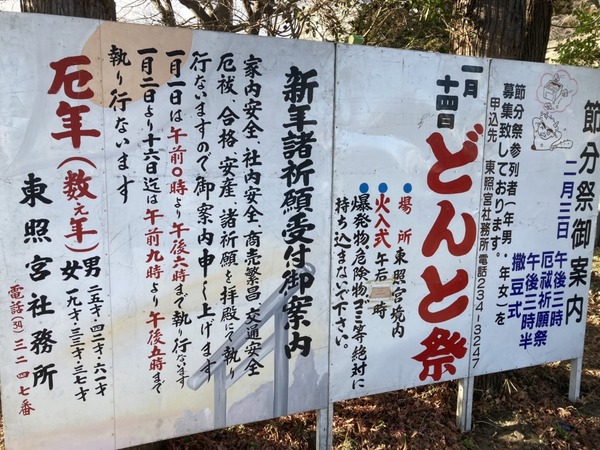 節分祭御案内
二月三日 午後三時 厄祓祈願祭
午後三時半 撒豆式
節分祭参列者（年男 年女）を
募集致しております。
申込先 東照宮社務所 電話234-3247
一月十四日 どんと祭
●場所 東照宮境内
●火入式 午后 時
●爆発物危険物ゴミ等絶対に
持ち込まないで下さい。
新年諸祈願受付御案内
家内安全、社内安全、商売繁昌、交通安全
厄祓、合格、安産、諸祈願を拝殿にて執り
行ないますので御案内申し上げます
一月一日は午前0時より午後六時まで執り行ないます
一月二日より十六日迄は午前九時より午後五時まで
執り行ないます
厄年（数え年）
男 二五才・四二才・六一才
女 一九才・三三才・三七才
東照宮社務所
電話(34)三二四七番